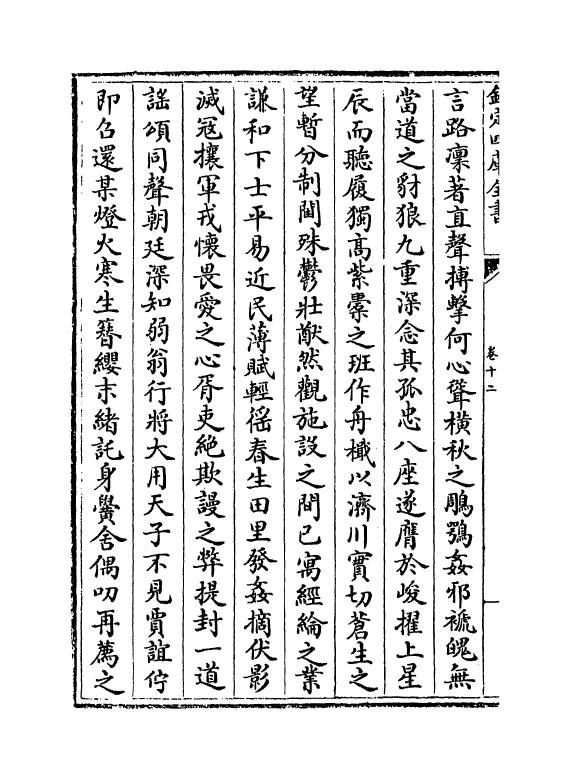 欽定四庫全書
卷十二
言路凜著直聲搏擊何心聳橫秋之鵰鶚姦邪褫魄無
當道之豺狼九重深念其孤忠八座遂膺於峻擢上星
辰而聽履獨髙紫橐之班作舟檝以濟川實切蒼生之
望暫分制閫殊鬱壯猷然觀施設之間已寓經綸之業
謙和下士平易近民薄賦輕徭春生田里發姦摘伏影
滅冦攘軍戎懷畏愛之心胥吏絶欺謾之弊提封一道
謡頌同聲朝廷深知弱翁行將大用天子不見賈誼佇
即召還某燈火寒生簪纓末緒託身黌舍偶叨再薦之